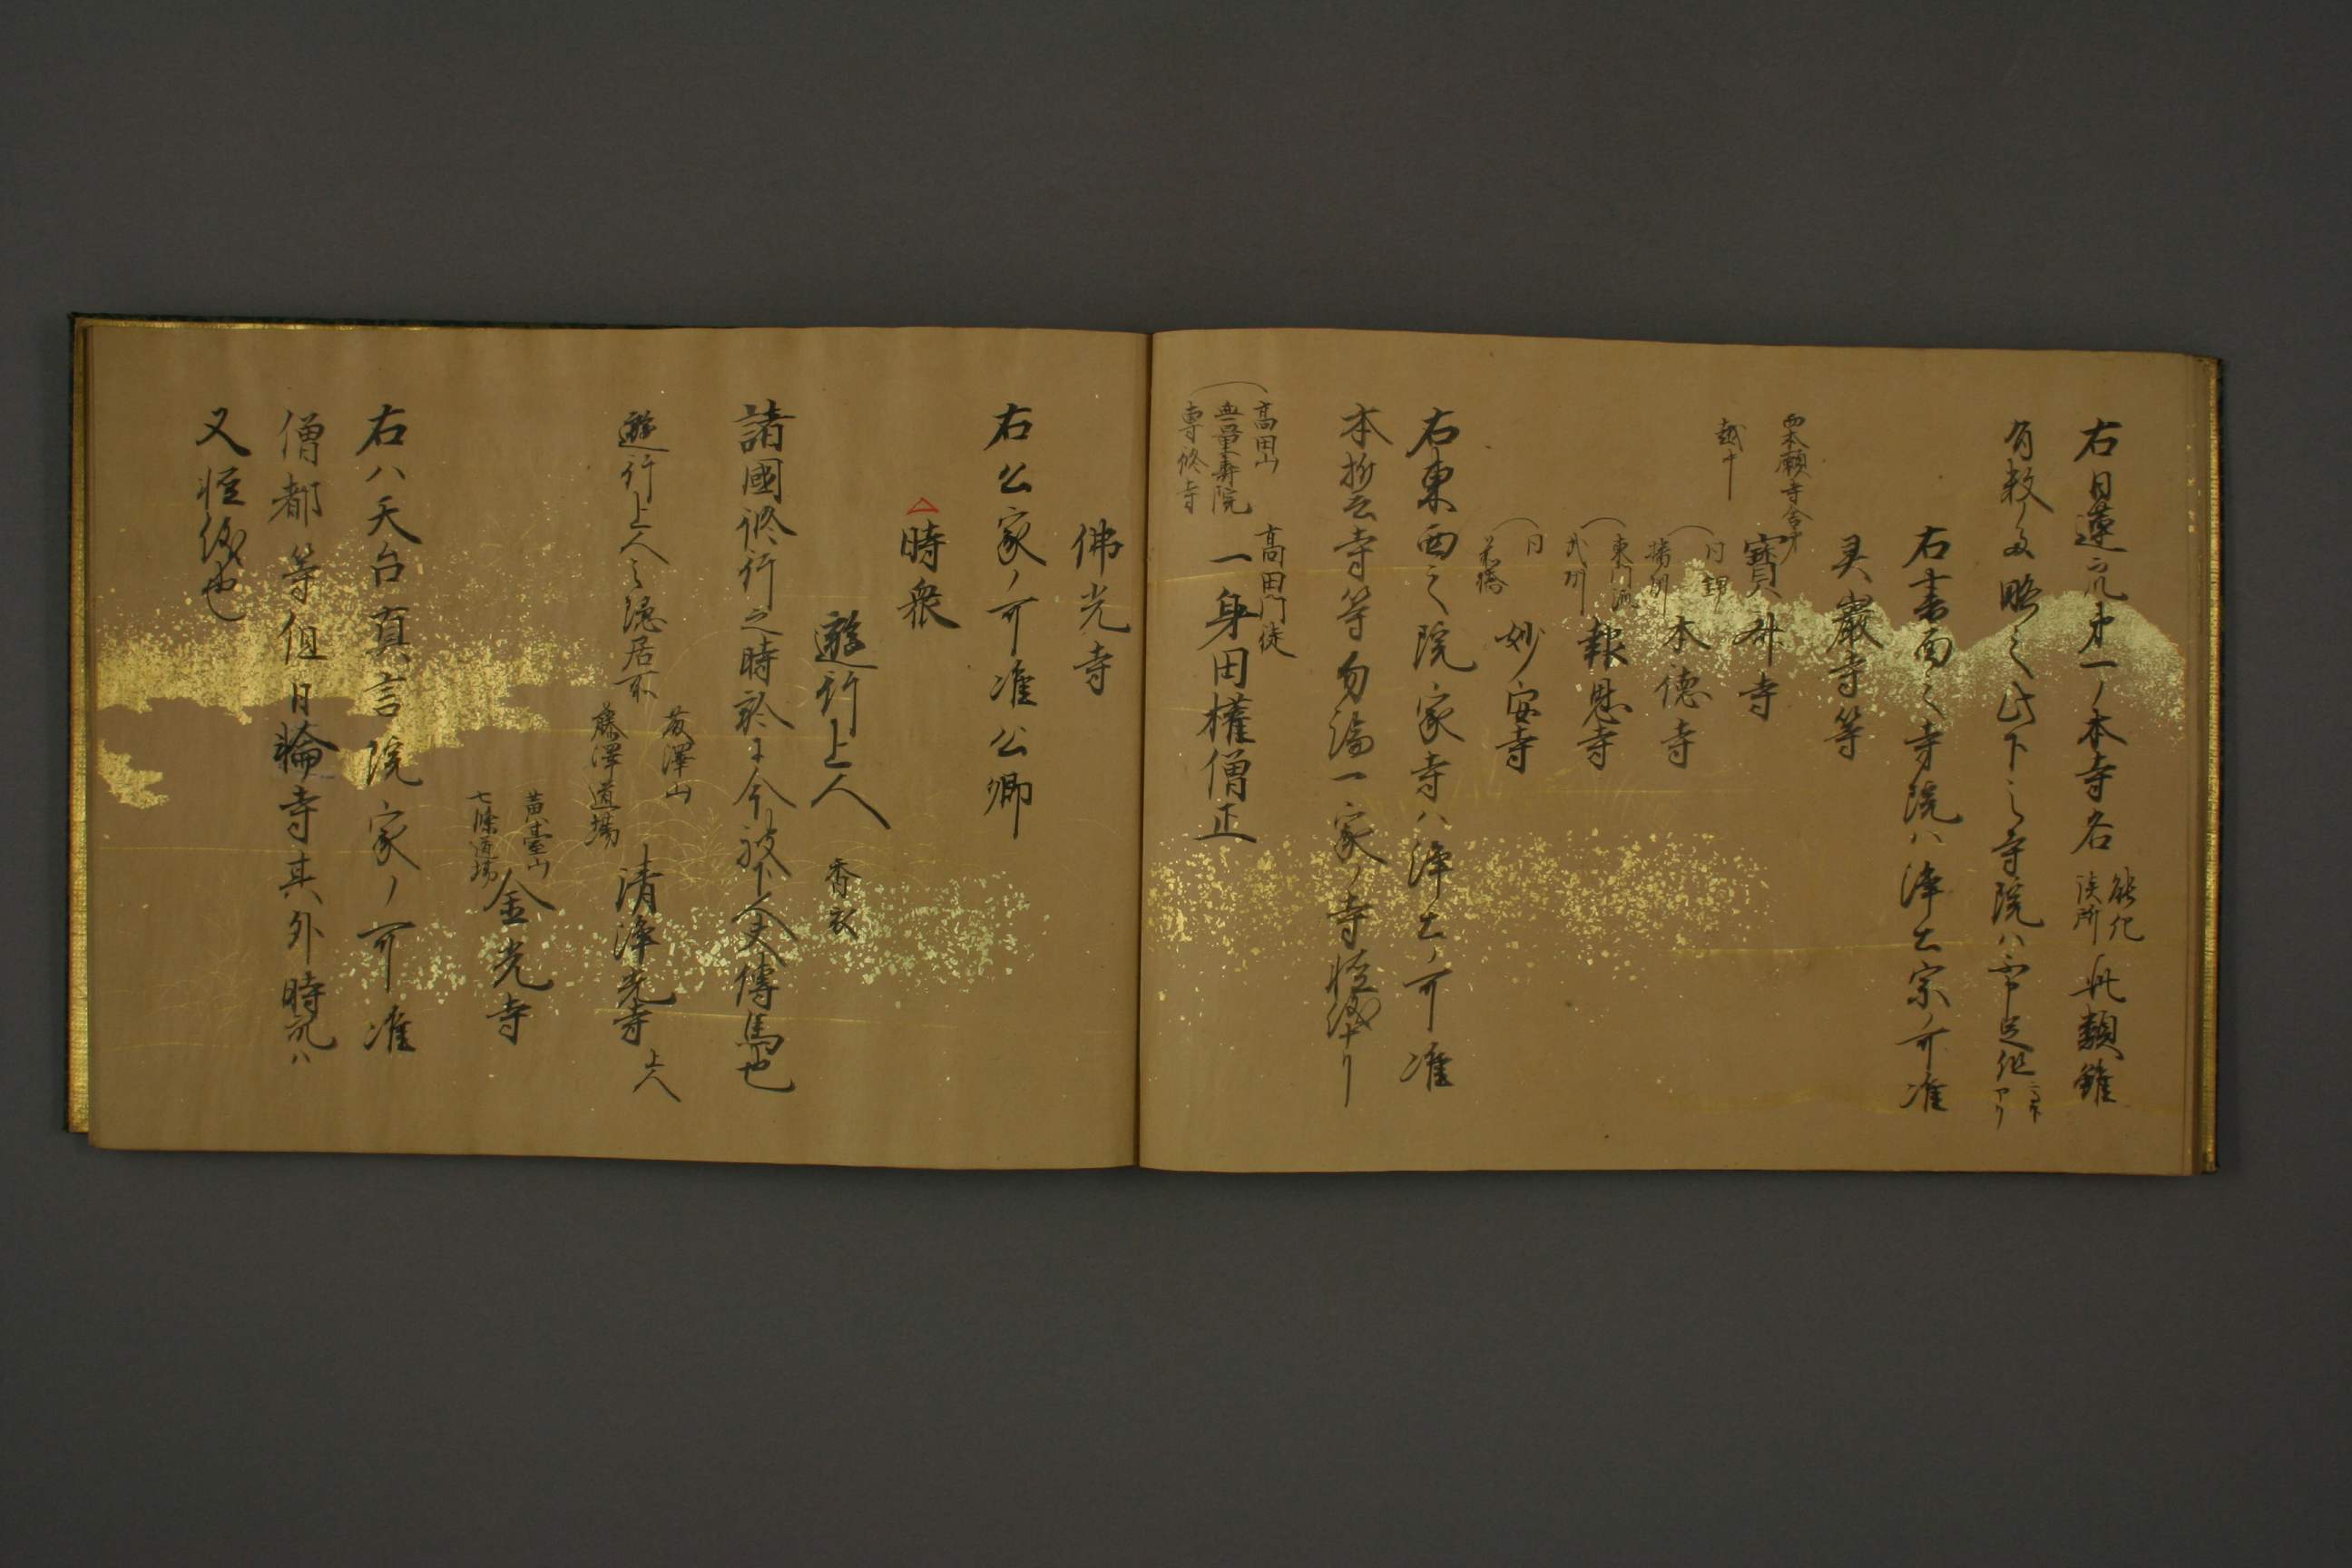 右日蓮之流第一ノ本寺名
能化
談所
此類雖
有数多略之此下之寺院ハ
アリ
右書面之寺院ハ浄土宗ノ可准
灵巌寺等
西本願寺舎弟
越中
寳升寺
同
播州
本徳寺
東門流
武州
報恩寺
同
前橋
妙安寺
右東西之院家寺ハ浄土ノ可准
本折云寺等勿論一家ノ寺
高田山
無量壽院
専修寺
高田門徒
一身田權僧正
佛光寺
右公家ノ可准公卿
△時衆
遊行上人
香衣
諸國修行之時於于今被下人夫傳馬也
遊行上人之隠居所
藤澤山
藤澤道場
清浄光寺
上人
黄臺山
七條道場
金光寺
右ハ天台真言院家ノ可准
僧都等但日輪寺其外時衆ハ
又軽儀也